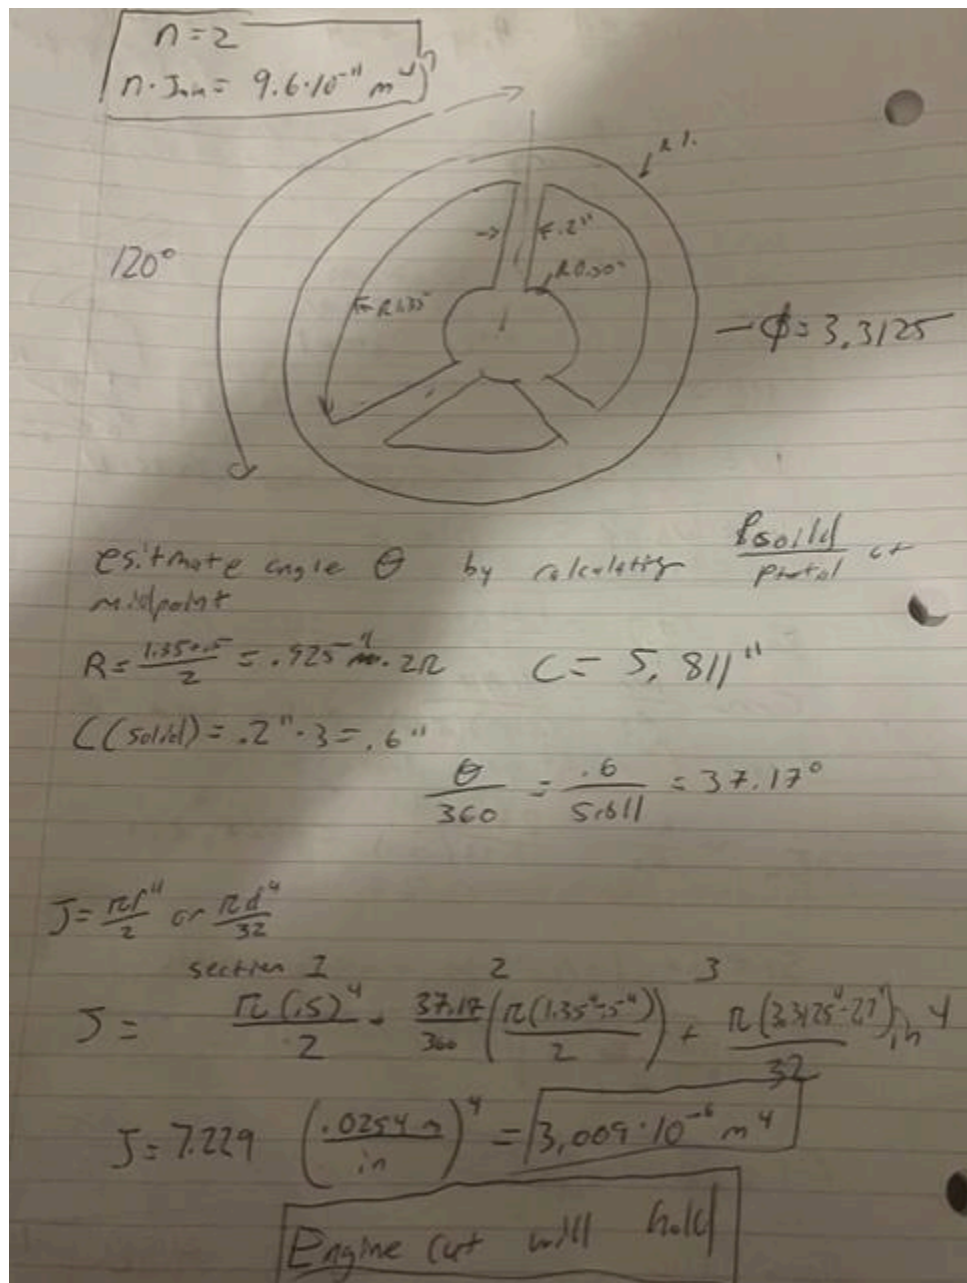 n=2
n·Jmin= 9.6·10⁻¹¹ m⁴
R1.
120°
.2"
R0.50"
R1.35"
ϕ=3.3125
esitmate angle θ by calculating Psolid/Ptotal at
midpoint
R= 1.35+.5/2 = .925"·2π C= 5.811"
C(solid)= .2"·3= .6"
θ/360 = .6/5.811 = 37.17°
J= πr⁴/2 or πd⁴/32
section 1 2 3
J= π(.5)⁴/2 + 37.17/360 (π(1.35⁴-.5⁴)/2) + π(3.3125⁴-2.7⁴)/32 in⁴
J= 7.229 (.0254 m/in)⁴ = 3.009·10⁻⁶ m⁴
Engine cut will hold